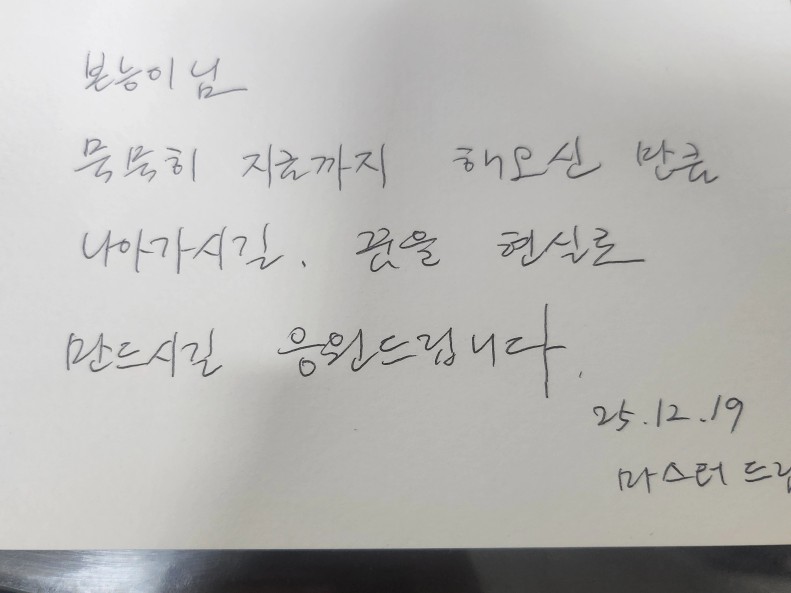 본능이님
묵묵히 지금까지 해오신 만큼
나아가시길. 꿈을 현실로
만드시길 응원드립니다.
25.12.19
마스터 드림